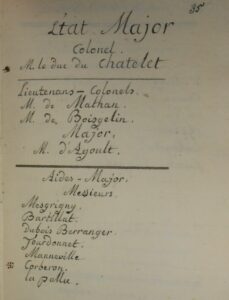 35
Etat Major
Colonel.
M. le duc du Chatelet
Lieutenans-Colonels.
M. de Mathan.
M. de Boisgelin.
Major.
M. d'Agoult.
Aides-Major.
Messieurs.
Mesgrigny.
Bartillat.
Dubois Berranger.
Jourdonnet.
Manneville.
Corberon.
la Pallu.